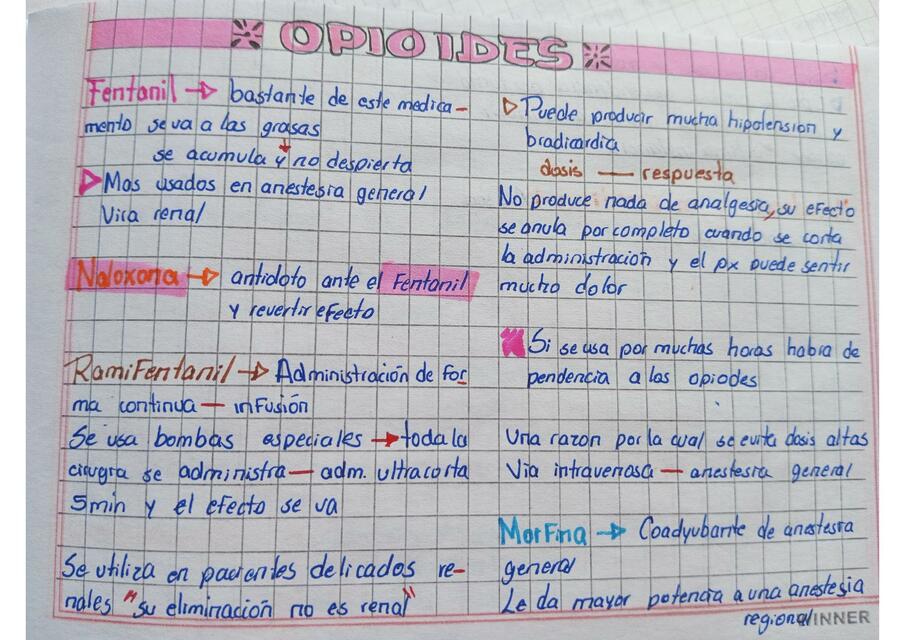 OPIOIDES
Fentanil → bastante de este medica-
mento se va a las grasas
se acumula y no despierta
Mas usados en anestesia general
Vira renal
Naloxona → antidoto ante el Fentanil
y revertir efecto
RamiFentanil → Administración de for
ma continua — infusión
Se usa bombas especiales → toda la
cirugra se administra — adm. ultracorta
5min y el efecto se va
Se utiliza en pacientes delicados re-
nales "su eliminación no es renal"
Puede producir mucha hipotension y
bradicardia
dosis — respuesta
No produce nada de analgesia, su efecto
se anula por completo cuando se corta
la administración y el px puede sentir
mucho dolor
Si se usa por muchas horas habra de
pendencia a los opiodes
Una razon por la cual se evita dosis altas
Via intravenosa — anestesia general
Morfina → Coadyubante de anestesia
general
Le da mayor potencia a una anestesia
regional
INNER